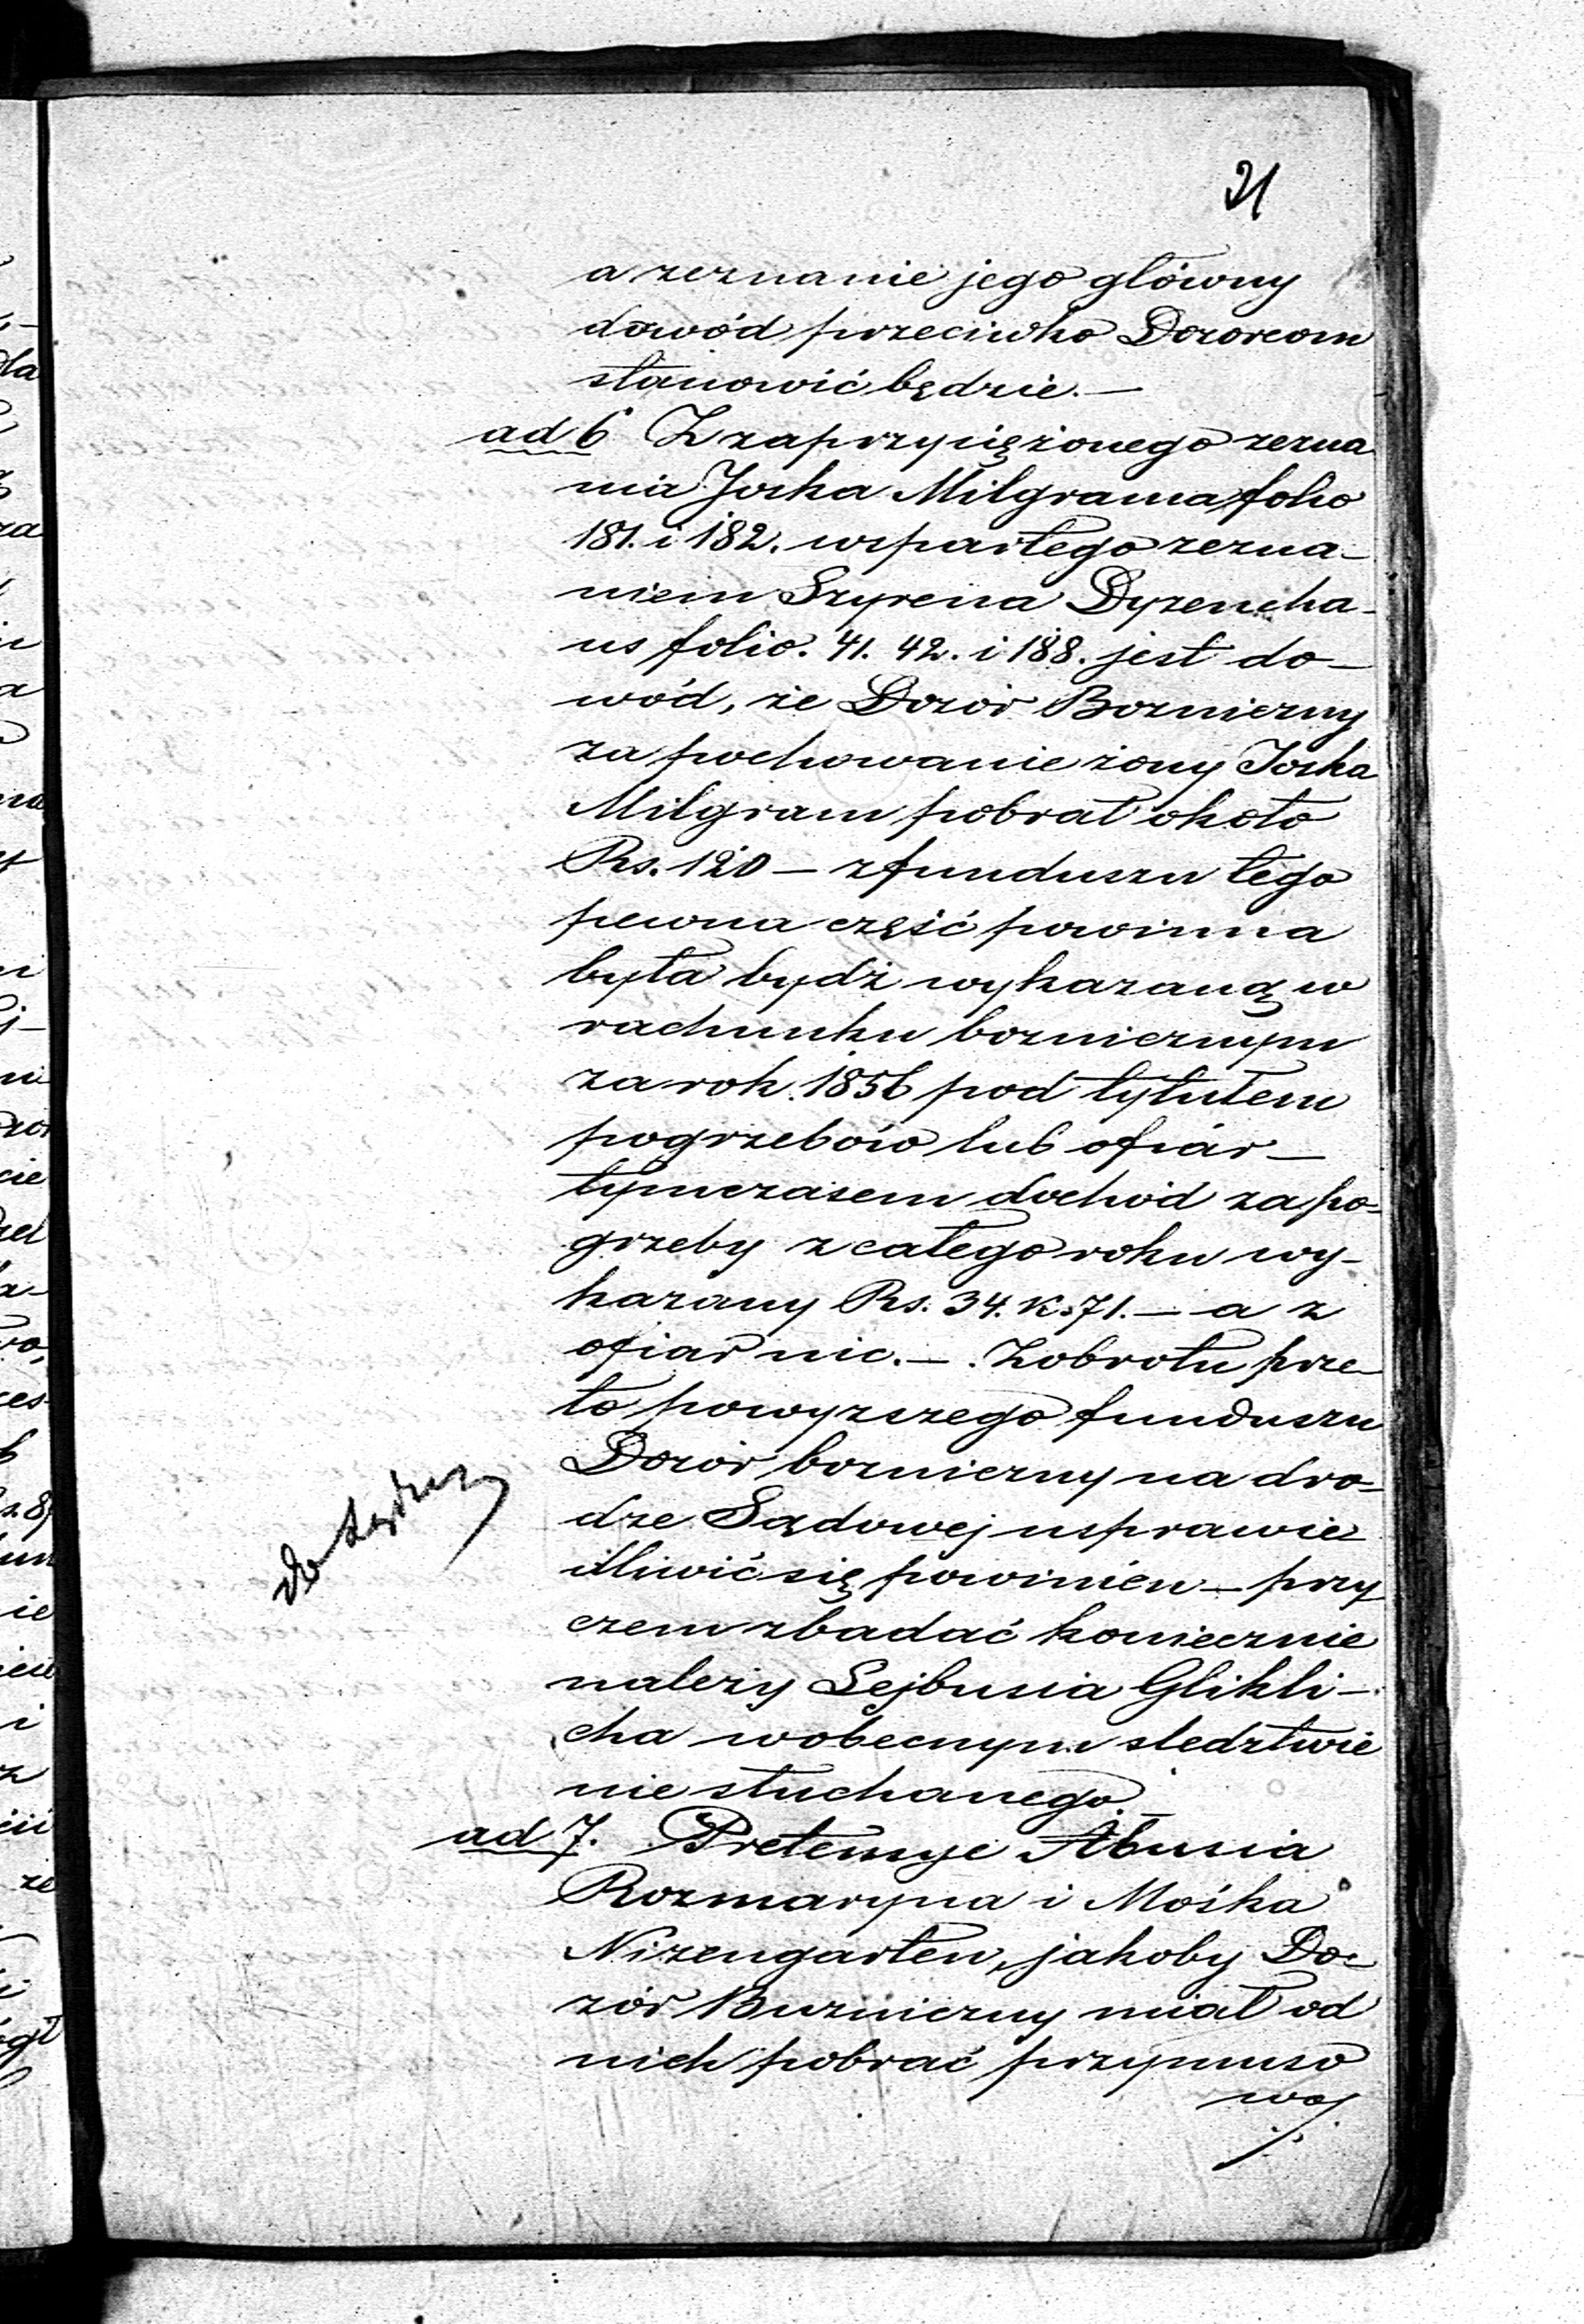 21
a zeznanie jego główny
dowód przeciwko Dozorcom
stanowić będzie.—
ad 6 Z zaprzysiężonego zezna
nia Joska Milgrama folio
181. i 182. wspartego zezna-
niem Szyrena Dyzencha-
us folio. 41. 42. i 188. jest do-
wód, że Dozór Bozniczny
za pochowanie żony Joska
Milgram pobrał około
Rs. 120 — z funduszu tego
pewna część powinna
była bydź wykazaną w
rachunku boznicznym
za rok 1856 pod tytułem
pogrzebów lub ofiar —
tymczasem dochód za po-
grzeby z całego roku wy-
kazany Rs. 34. k. 71. — a z
ofiar nic. — Z obrotu prze-
to powyzszego funduszu
Dozór bozniczny na dro-
dze Sądowej usprawie
dliwić się powinien — przy
czem zbadać koniecznie
należy Lejbusia Glikli-
cha w obecnym sledztwie
nie słuchanego.
do
ad 7. Pretensye Abusia
Rozmaryna i Mośka
Nizengarten, jakoby Do-
zór Bużniczny miał od
nich pobrać przymuso
wo